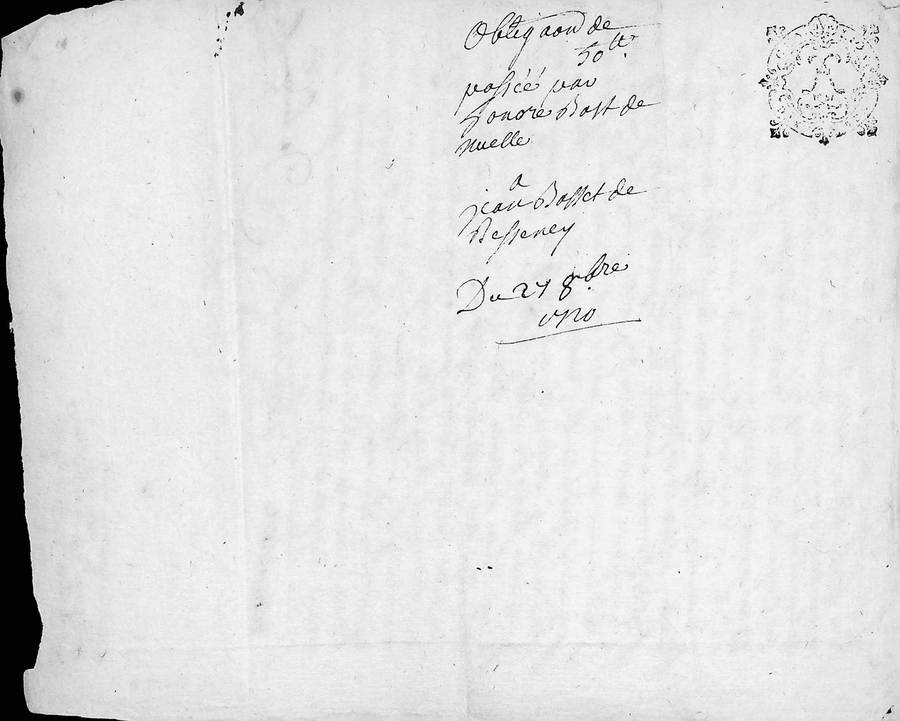 Obligaon de
50 lt.
passéé par
honore Bost de
nuelle
a
jean Bosset de
Besseney
Du 27 8bre
1710